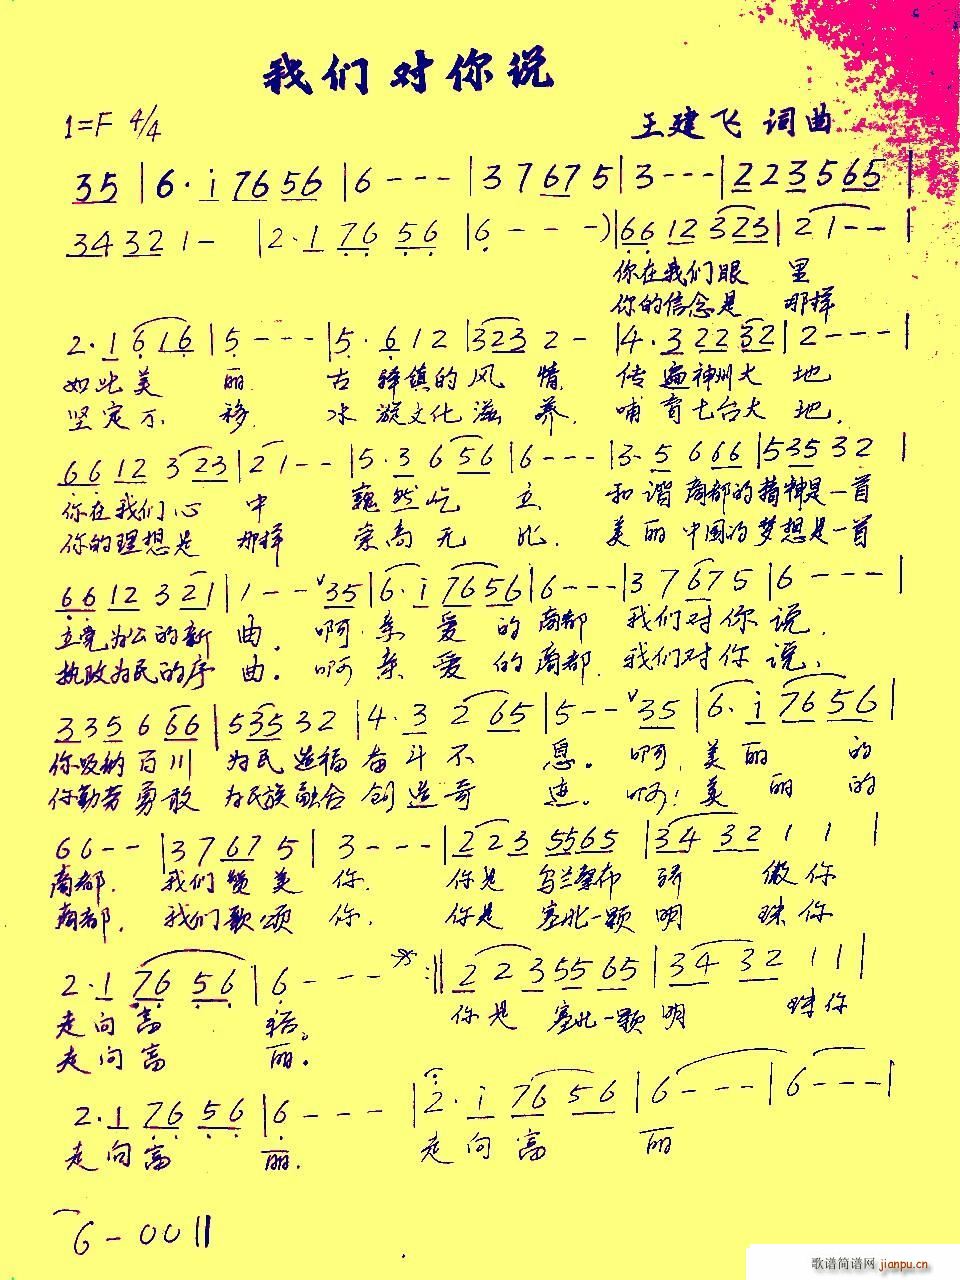 我们对你说
1=F 4/4
王建飞 词曲
35 | 6·i 76 56 | 6 - - - | 3 7 67 5 | 3 - - - | 2 2 3 5 65 |
34 32 1 - | 2·1 76 56 | 6 - - - ) | 66 12 3 23 | 2 1 - - |
你在我们眼 里
你的信念是 那样
2·1 6 16 | 5 - - - | 5·6 1 2 | 3 23 2 - | 4·3 22 32 | 2 - - - |
如此美 丽 古 驿镇的风 情 传遍神州大 地
坚定不 移 水 漩文化滋 养 哺育七台大 地
66 12 3 23 | 2 1 - - | 5·3 6 56 | 6 - - - | 3·5 6 66 | 5 35 3 2 |
你在我们心 中 巍然屹 立 和谐商都的精神是一首
你的理想是 那样 崇高无 比 美丽中国的梦想是一首
66 12 3 21 | 1 - - ∨35 | 6·i 76 56 | 6 - - - | 3 7 67 5 | 6 - - - |
立党为公的新 曲。 啊 亲 爱 的 商都 我们对你 说,
执政为民的序 曲。 啊 亲 爱 的 商都 我们对你 说,
3 35 6 66 | 5 35 3 2 | 4·3 2 65 | 5 - - ∨35 | 6·i 76 56 |
你吸纳百川 为民造福奋斗不 息。 啊,美 丽 的
你勤劳勇敢 为民族融合创造奇 迹。 啊!美 丽 的
6 6 - - | 3 7 67 5 | 3 - - - | 2 2 3 55 65 | 34 32 1 1 |
商都, 我们赞美 你, 你是 乌兰察布 骄 傲你
商都, 我们歌颂 你, 你是 塞北一颗明 珠你
2·1 76 56 | 6 - - - :‖ 2 2 3 55 65 | 34 32 1 1 |
走向富 裕。 你是 塞北一颗明 珠你
走向富 丽。
2·1 76 56 | 6 - - - | 2·i 76 56 | 6 - - - | 6 - - - |
走向富 丽. 走向富 丽
6 - 0 0 ‖
歌谱简谱网 jianpu.cn